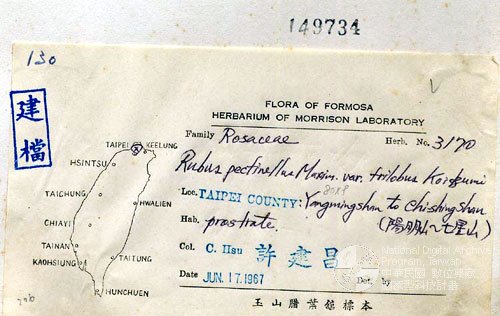 149734
130
建檔
FLORA OF FORMOSA
HERBARIUM OF MORRISON LABORATORY
Family Rosaceae Herb. No. 3170
Rubus pectinellus Maxim. var. trilobus Koidzumi
Loc. TAIPEI COUNTY: Yangmingshan to Chishingshan
(陽明山~七星山)
Hab. prostrate.
Col. C. Hsu 許建昌
Date JUN. 17. 1967 Det. by
玉山腊葉舘標本
TAIPEI
KEELUNG
HSINTSU
TAICHUNG
HWALIEN
CHIAYI
TAINAN
KAOHSIUNG
TAITUNG
HUNCHUEN
National Digital Archives
Program, Taiwan
中華民國 數位典藏
國家型科技計畫